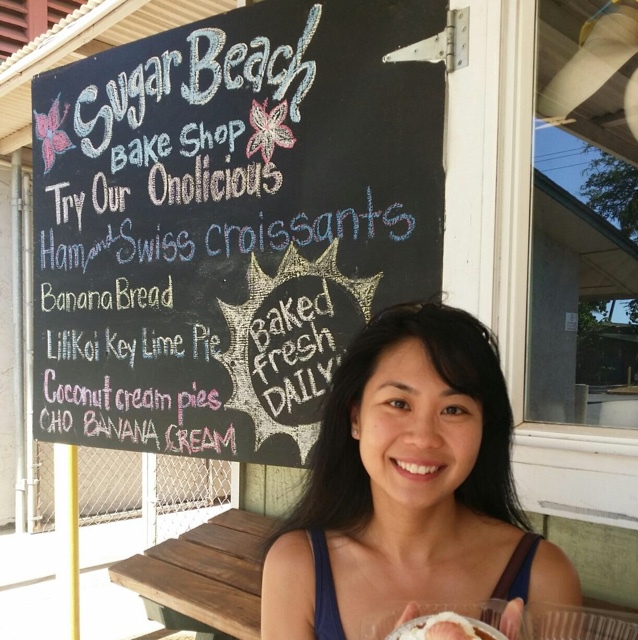 Sugar Beach
Bake Shop
Try Our Onolicious
Ham and Swiss croissants
Banana Bread
LiliKoi Key Lime Pie
Coconut cream pies
CHO BANANA CREAM
Baked
fresh
DAILY!